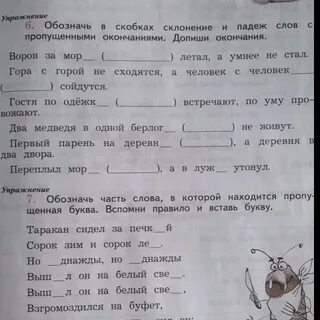 Упражнение
6. Обозначь в скобках склонение и падеж слов с
пропущенными окончаниями. Допиши окончания.
Ворон за мор__ (__________) летал, а умнее не стал.
Гора с горой не сходятся, а человек с человек____
(__________) сойдутся.
Гостя по одёжк__ (__________) встречают, по уму про-
вожают.
Два медведя в одной берлог__ (__________) не живут.
Первый парень на деревн__ (__________), а деревня в
два двора.
Переплыл мор__ (__________), а в луж__ утонул.
Упражнение
7. Обозначь часть слова, в которой находится пропу-
щенная буква. Вспомни правило и вставь букву.
Таракан сидел за печк__й
Сорок зим и сорок ле__.
Но __днажды, но __днажды
Выш__л он на белый све__.
Выш__л он на белый све__,
Взгромоздился на буфет,